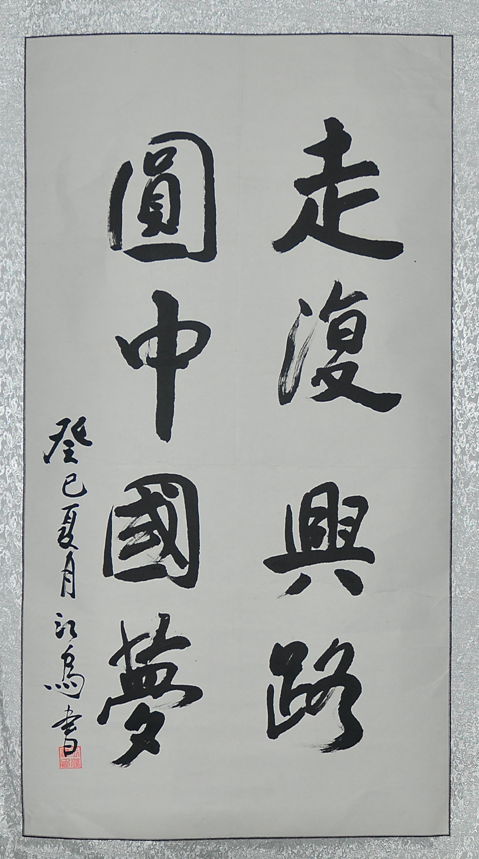 走復興路
圓中國夢
癸巳夏月江鳥書